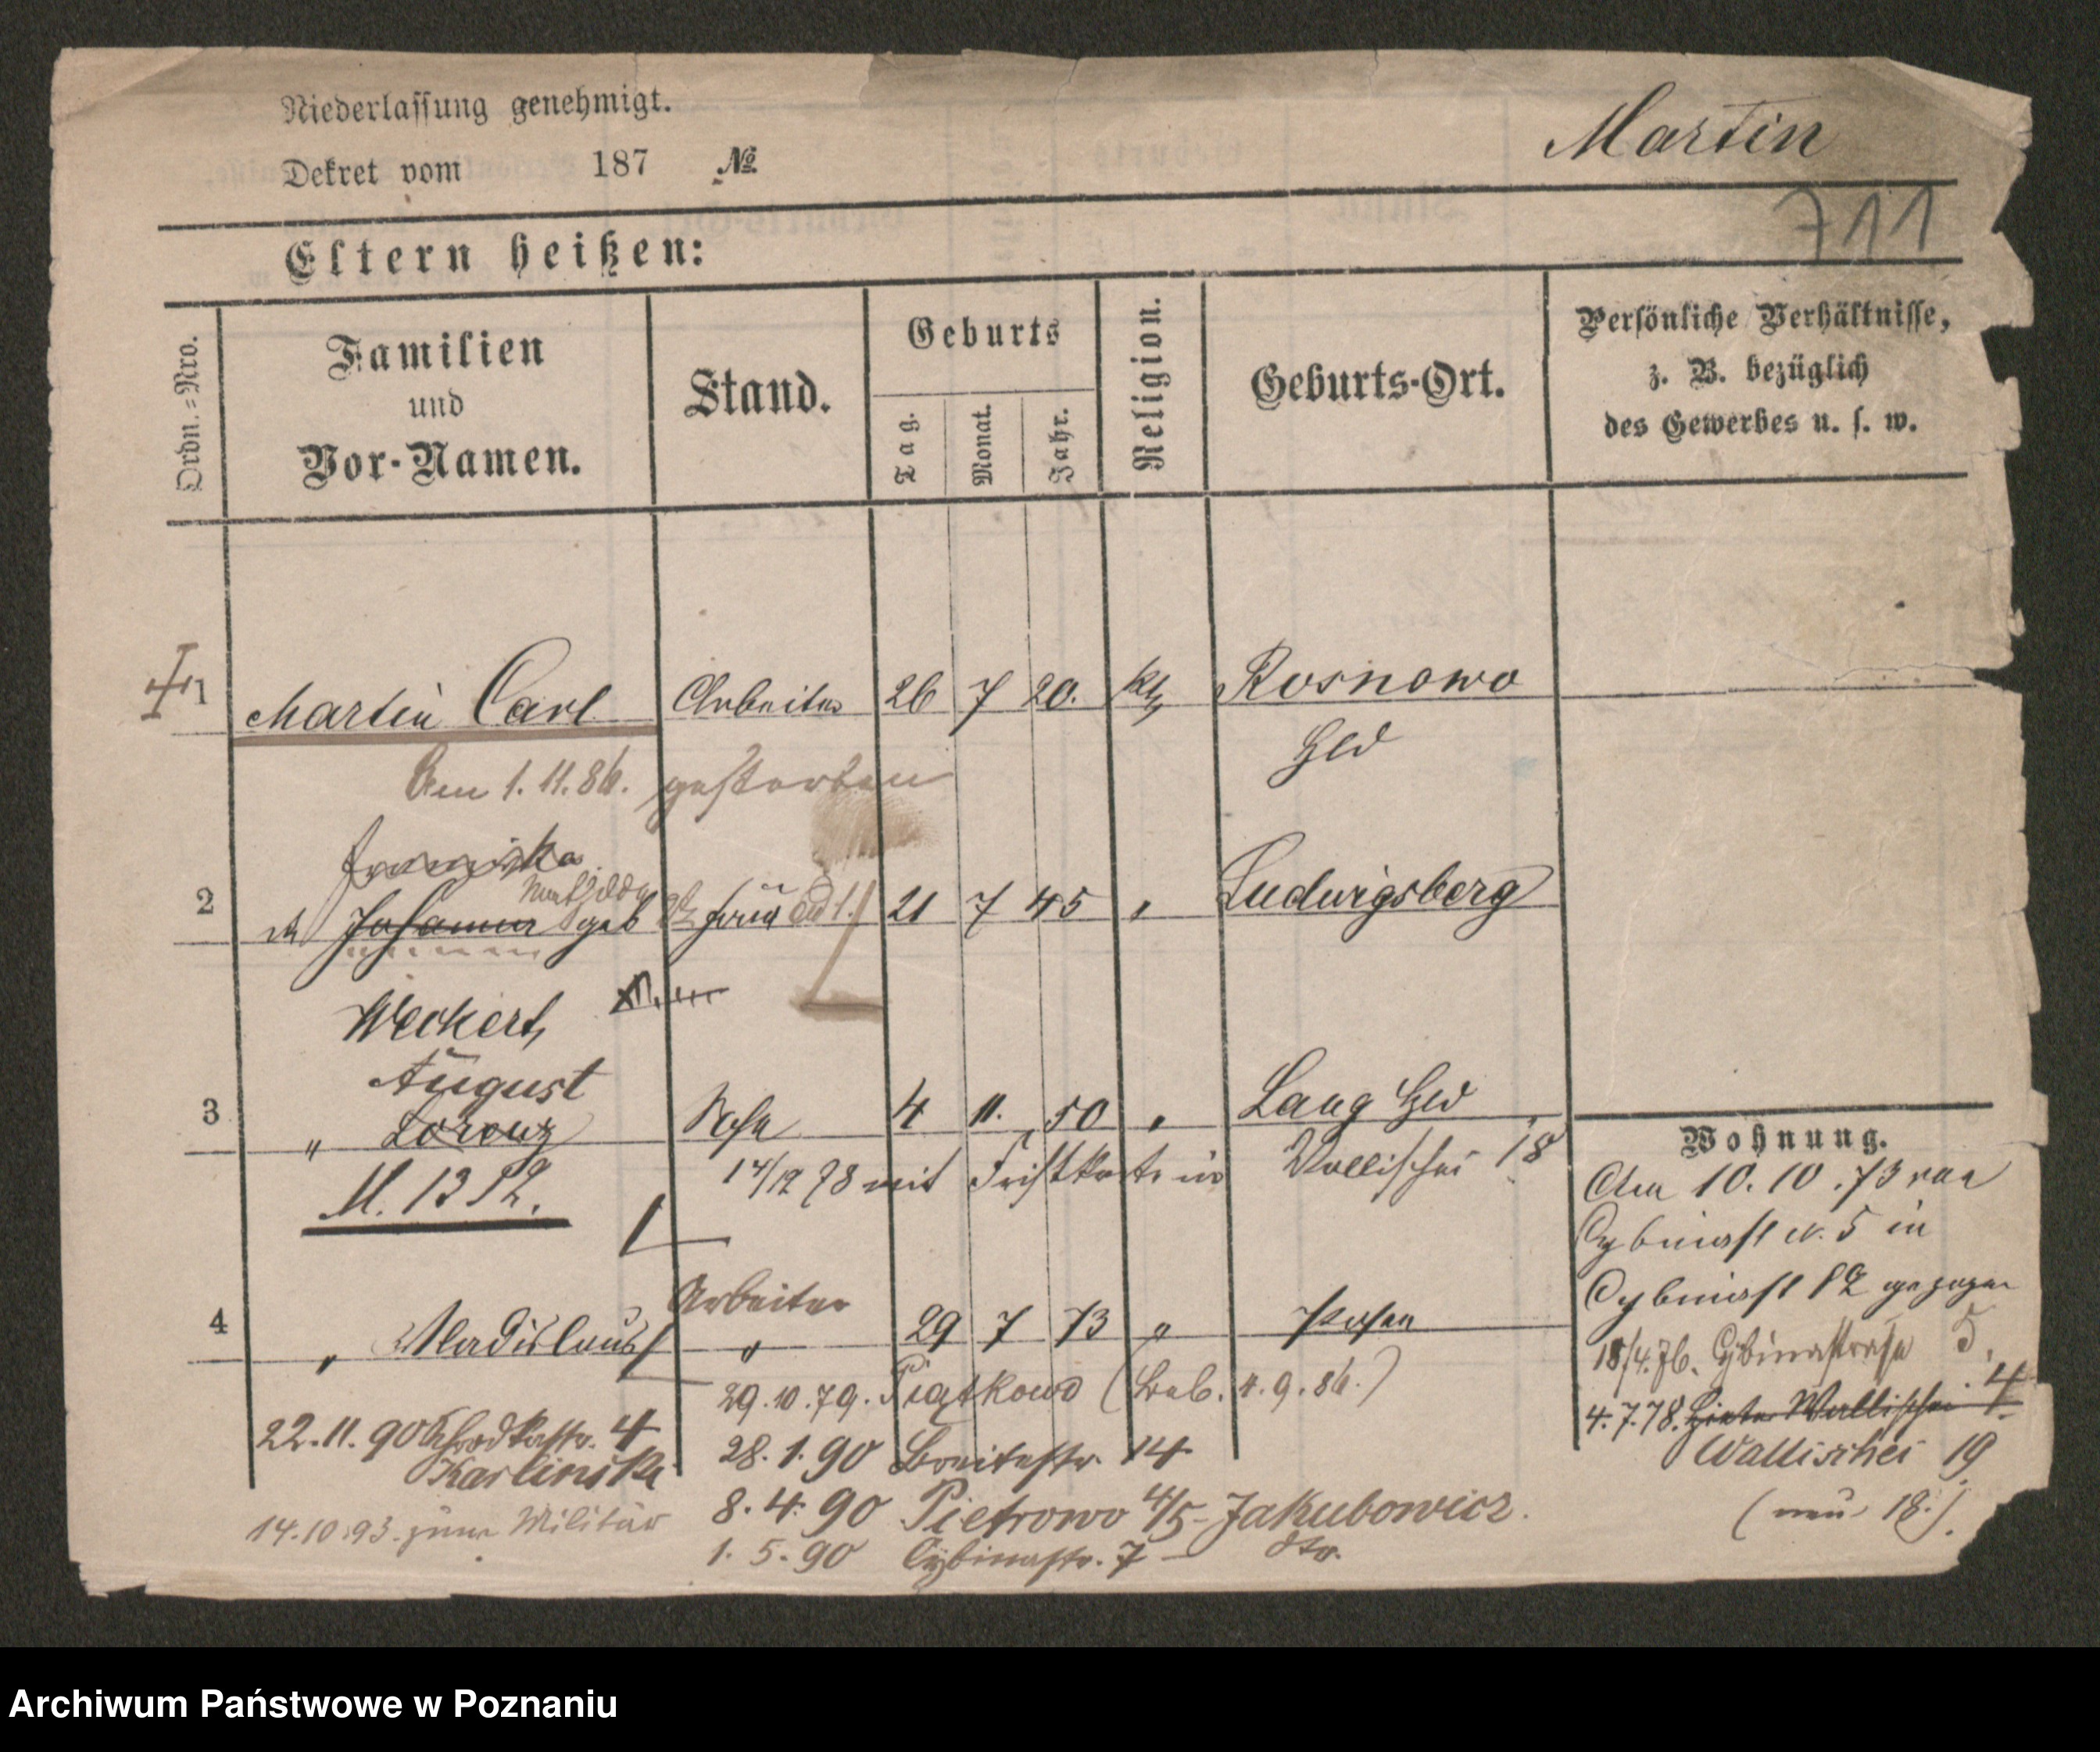 Niederlassung genehmigt.
Dekret vom 187 №
Martin
711
Eltern heißen:
Ordn.=Nro.
Familien
und
Vor-Namen.
Stand.
Geburts
Tag.
Monat.
Jahr.
Religion.
Geburts-Ort.
Persönliche Verhältnisse,
z. B. bezüglich
des Gewerbes u. s. w.
1 Martin Carl Arbeiter 26 7 20. Kth Rosnowo
Hld
Am 1. 11. 86. gestorben
Franziska
2 Johanna geb Frau ad 1. 21 7 45 " Ludwigsberg
Weckert,
August
3 " Lorenz Sohn 4 11. 50 " Lang Hld
14/12 78 mit Wallischei 18
M. 1392.
Arbeiter
4 " Wladislaus " 29 7 73 " Posen
29. 10. 79. Piątkowo ( 4. 9. 86.)
22. 11. 90 4
28. 1. 90 Breitestr. 14
Karlinska
8. 4. 90 Pietrowo 4/5 - Jakubowicz
14. 10. 93. zum Militär
1. 5. 90 Cybinastr. 7 —
Wohnung.
Am 10. 10. 73 von
Cybinast N. 5 in
Cybinast gezogen
18/4. 76. Cybinastrasse 5.
4. 7. 78. Hinter Wallischei 4
Wallischei 19
(neu 18.)
Archiwum Państwowe w Poznaniu